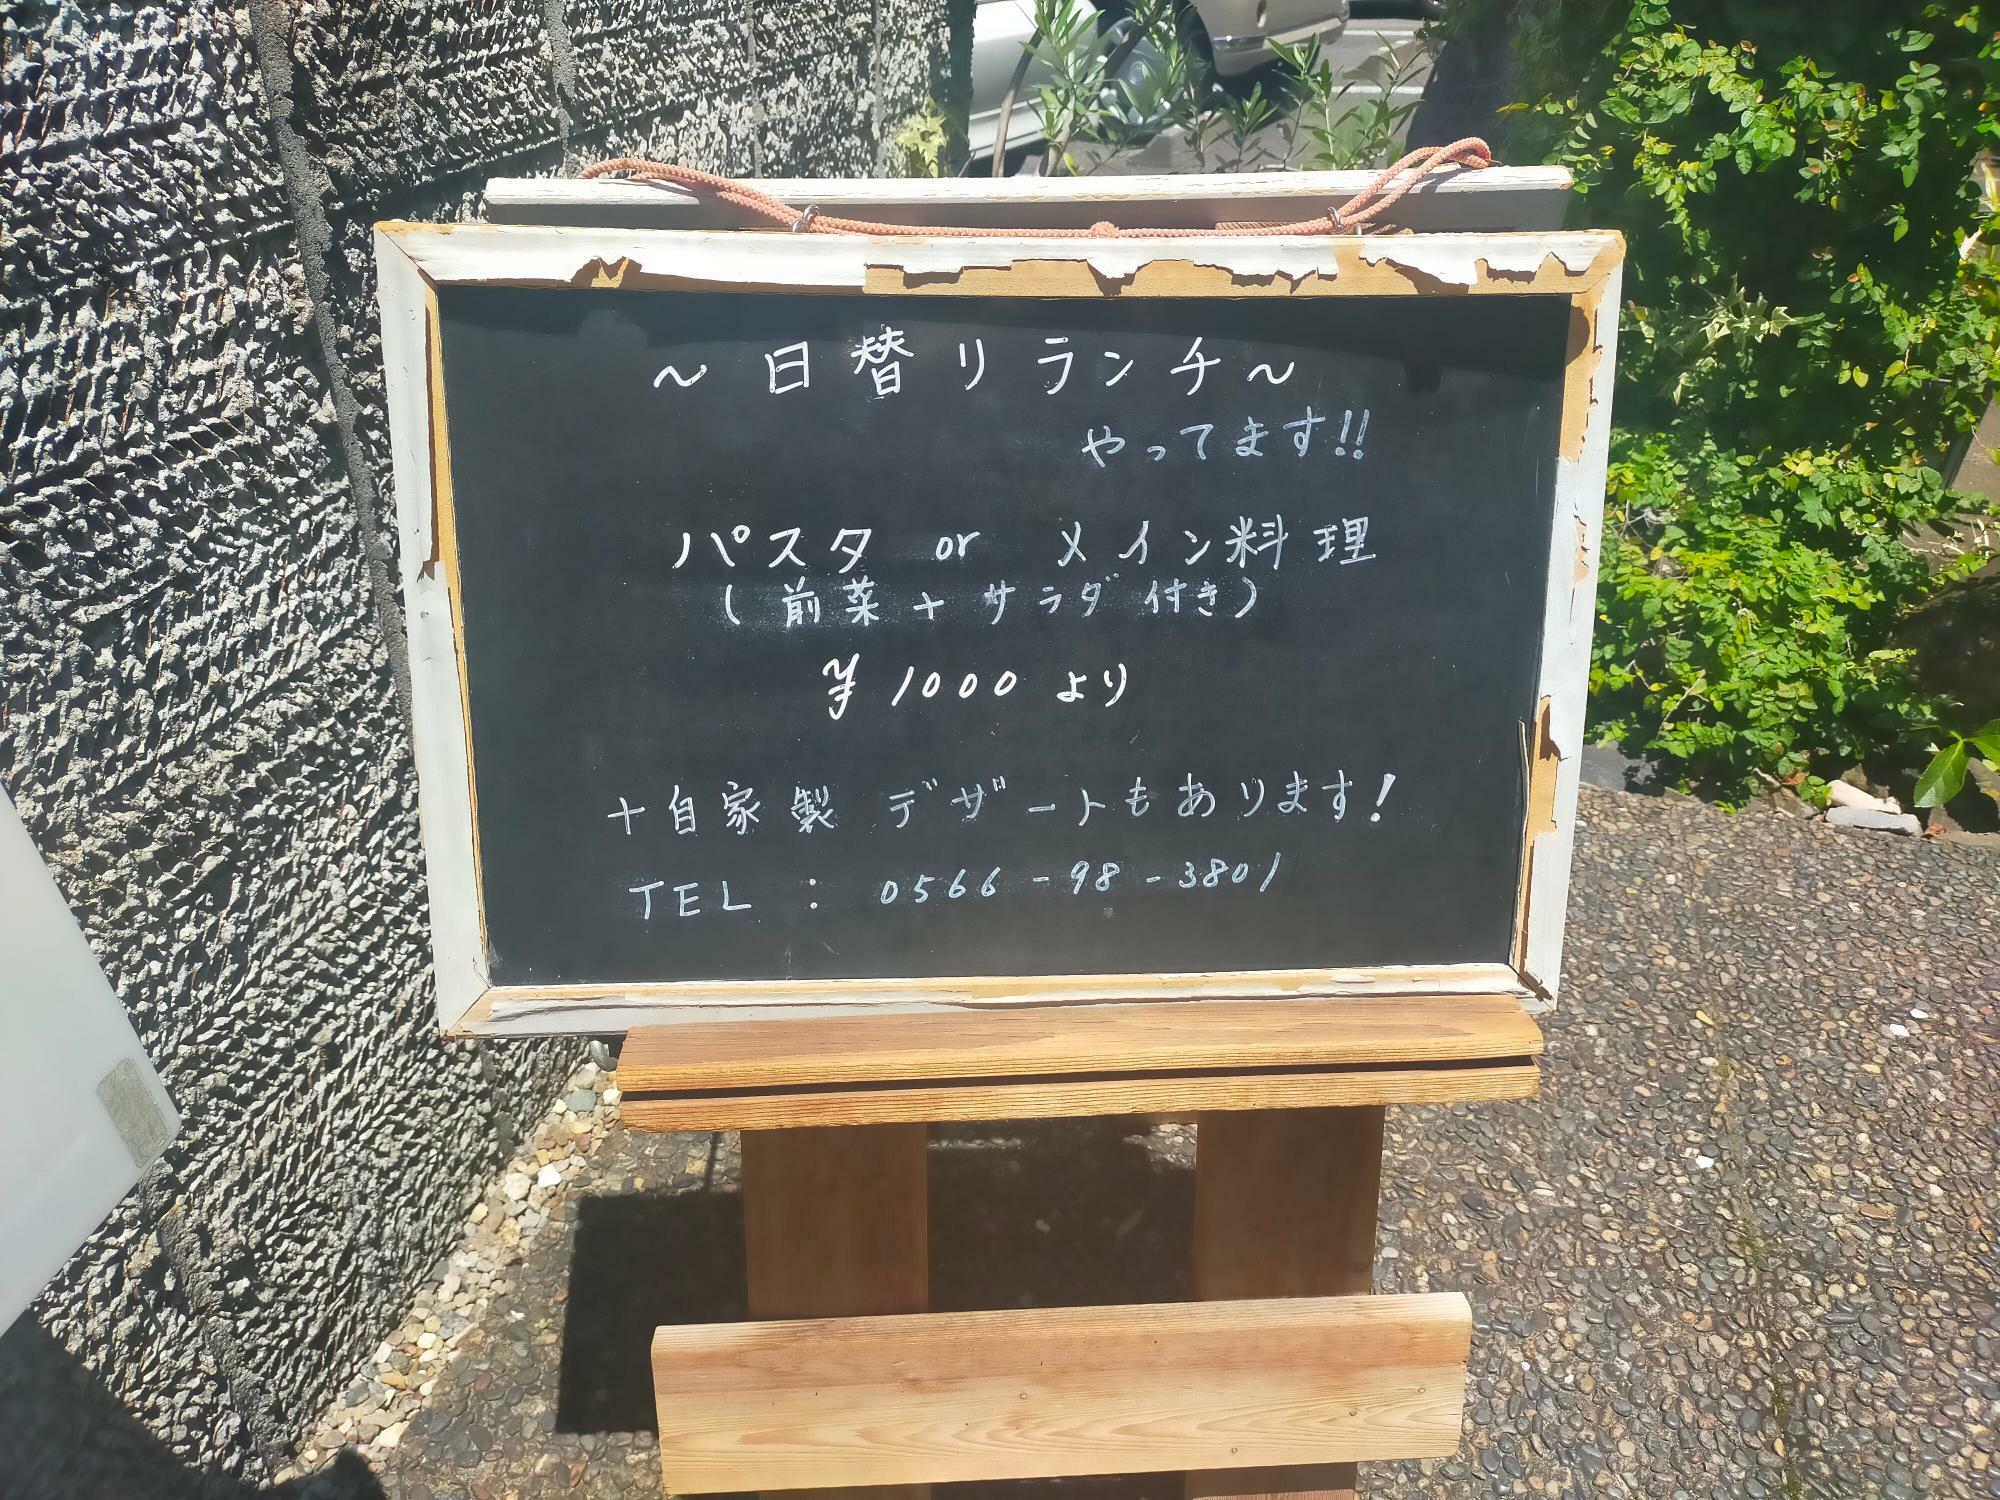 ～日替りランチ～
やってます!!
パスタ or メイン料理
(前菜+サラダ付き)
¥1000より
+自家製デザートもあります!
TEL : 0566-98-3801